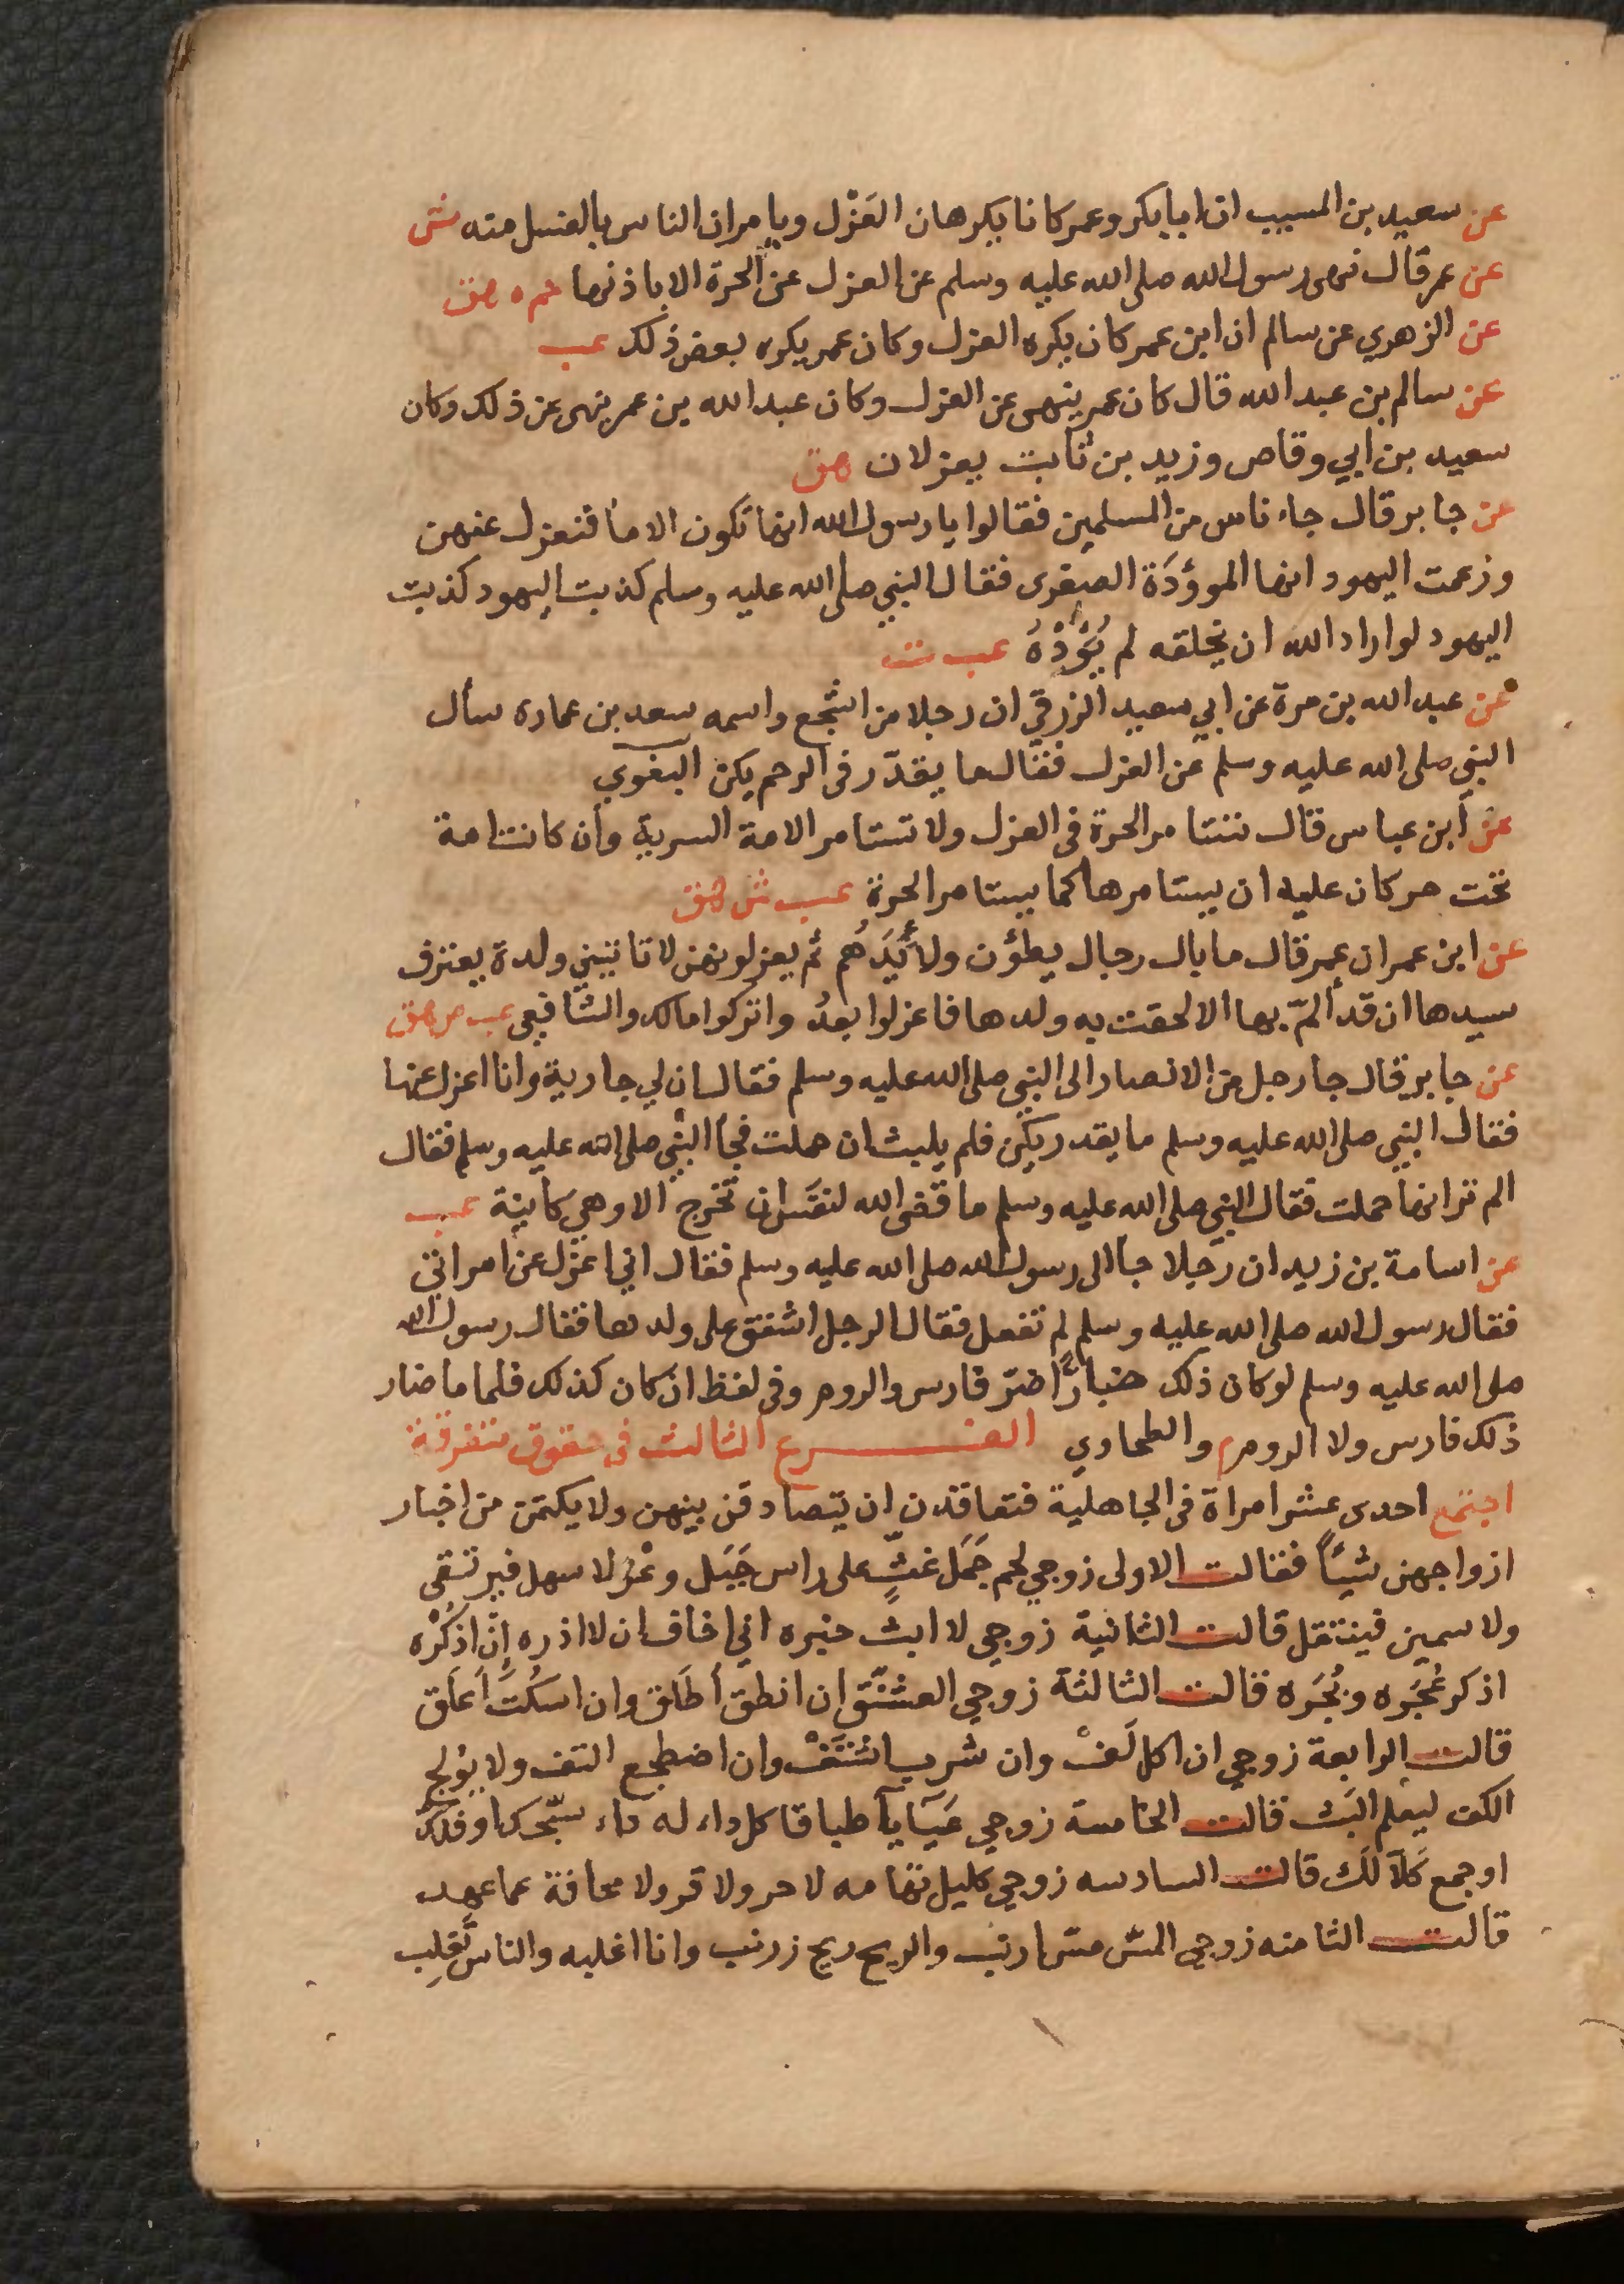 عن سعيد بن المسيب ان ابابكر وعمر كانا يكرهان العَزْل ويامران الناس بالغسل منه ش
عن عمر قال نهى رسول الله صلى الله عليه وسلم عن العزل عن الحرة الا باذنها حم ه هق
عن الزهري عن سالم ان ابن عمر كان يكره العزل وكان عمر يكره بعض ذلك عب
عن سالم بن عبد الله قال كان عمر ينهى عن العزل وكان عبد الله بن عمر ينهى عن ذلك وكان
سعيد بن ابي وقاص وزيد بن ثابت يعزلان هق
عن جابر قال جاء ناس من المسلمين فقالوا يا رسول الله انها تكون الاما فنعزل عنهن
وزعمت اليهود انها الموؤدَة الصغرى فقال النبي صلى الله عليه وسلم كذبت اليهود كذبت
اليهود لو اراد الله ان يخلقه لم يُؤْدْهُ عب ت
عن عبد الله بن مرة عن ابي سعيد الزرقي ان رجلا من اشجع واسمه سعد بن عماره سأل
النبي صلى الله عليه وسلم عن العزل فقال ما يقدّر فى الرحم يكن البغوي
عن ابن عباس قال تستامر الحرة فى العزل ولا تستامر الامة السرية وان كانت امة
تحت حر كان عليه ان يستامرها كما يستامر الحرة عب ش هق
عن ابن عمر ان عمر قال ما بال رجال يطؤن ولائدَهُم ثم يعزلونهن لا تاتيني ولدة يعترف
سيدها ان قد ألمّ بها الا لحقت به ولدها فاعزلوا بعدُ واتركوا مالك والشافعي عب ص هق
عن جابر قال جا رجل من الانصار الى النبي صلى الله عليه وسلم فقال ان لي جارية وانا اعزل عنها
فقال النبي صلى الله عليه وسلم ما يقدر يكن فلم يلبث ان حملت فجا النبي صلى الله عليه وسلم فقال
الم تر انها حملت فقال النبي صلى الله عليه وسلم ما قضى الله لنفس ان تخرج الا وهي كاينة عب
عن اسامة بن زيد ان رجلا جا الى رسول الله صلى الله عليه وسلم فقال اني اعزل عن امراتي
فقال رسول الله صلى الله عليه وسلم لم تفعل فقال الرجل اشفق على ولدها فقال رسول الله
صلى الله عليه وسلم لو كان ذلك ضاراً اضرّ فارس والروم وفى لفظ ان كان كذلك فلما ما ضار
ذلك فارس ولا الروم م والطحاوي الفــرع الثالث فى حقوق متفرقة
اجتمع احدى عشر امراة فى الجاهلية فتعاقدن ان يتصادقن بينهن ولا يكتمن من اخبار
ازواجهن شيئاً فقالت الاولى زوجي لحم جَمَل غثٍّ على راس جَبَل وعْر لا سهل فيرتقى
ولا سمين فينتقل قالت الثانية زوجي لا ابث خبره اني اخاف ان لا اذره إن اذكُرْه
اذكر عُجَره وبُجَره قالت الثالثة زوجي العشنّق ان انطق أطَلق وان اسكُتَ أعَلَق
قالت الرابعة زوجي ان اكل لَفْ وان شرب اشْتَفْ وان اضطجع التف ولا يوْلج
الكف ليعلم البَث قالت الخامسة زوجي عَيَآياَ طباقا كل داء له داء شجّك او فلك
او جمع كَلاً لَك قالت السادسه زوجي كليل تهامه لا حر ولا قر ولا مخافة عما عهد
قالت الثامنه زوجي المسّ مسّ ارنب والريح ريح زرنب وانا اغلبه والناس تَغلِب